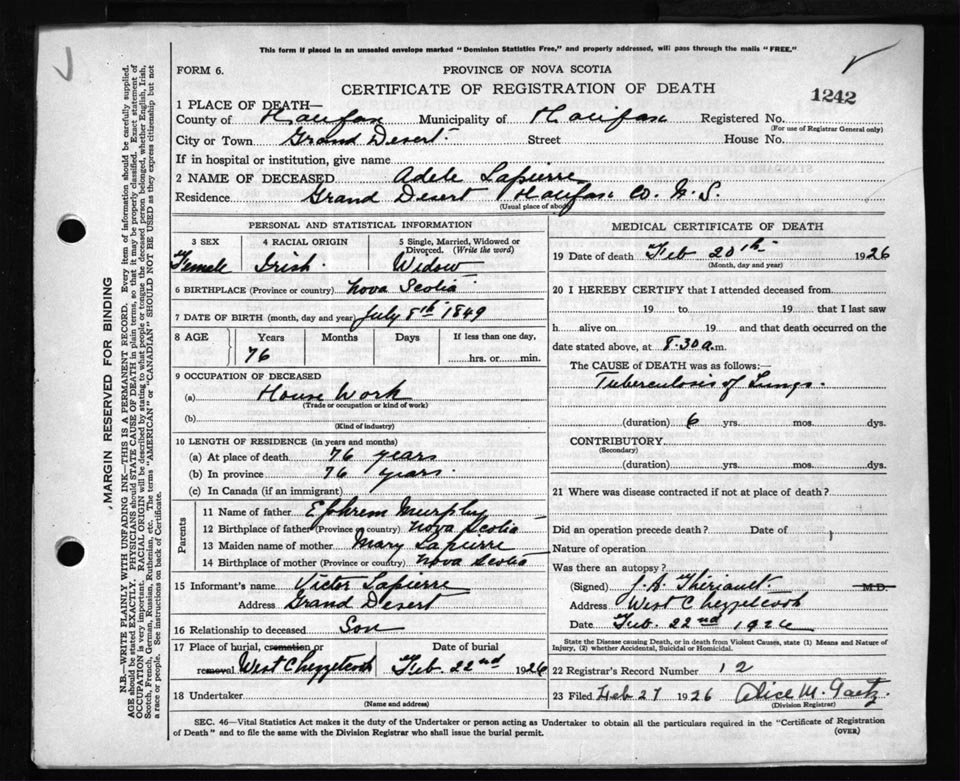 This form if placed in an unsealed envelope marked "Dominion Statistics Free," and properly addressed, will pass through the mails "FREE."
FORM 6.
PROVINCE OF NOVA SCOTIA
CERTIFICATE OF REGISTRATION OF DEATH
1242
1 PLACE OF DEATH—
County of Halifax Municipality of Halifax Registered No.
(For use of Registrar General only)
City or Town Grand Desert Street House No.
If in hospital or institution, give name
2 NAME OF DECEASED Adele Lapierre
Residence Grand Desert Halifax Co. N.S.
(Usual place of abode)
PERSONAL AND STATISTICAL INFORMATION
3 SEX 4 RACIAL ORIGIN 5 Single, Married, Widowed or Divorced. (Write the word)
Female Irish Widow
6 BIRTHPLACE (Province or country) Nova Scotia
7 DATE OF BIRTH (month, day and year) July 8th 1849
8 AGE Years Months Days If less than one day,
76 hrs. or min.
9 OCCUPATION OF DECEASED
(a) House Work
(Trade or occupation or kind of work)
(b)
(Kind of industry)
10 LENGTH OF RESIDENCE (in years and months)
(a) At place of death 76 years
(b) In province 76 years.
(c) In Canada (if an immigrant)
Parents
11 Name of father Ephrem Murphy
12 Birthplace of father (Province or country) Nova Scotia
13 Maiden name of mother Mary Lapierre
14 Birthplace of mother (Province or country) Nova Scotia
15 Informant's name Victor Lapierre
Address Grand Desert
16 Relationship to deceased Son
17 Place of burial, cremation or Date of burial
removal West Chezzetcook Feb. 22nd 1926
18 Undertaker
(Name and address)
MEDICAL CERTIFICATE OF DEATH
19 Date of death Feb 20th 1926
(Month, day and year)
20 I HEREBY CERTIFY that I attended deceased from
19 to 19 that I last saw
h alive on 19 and that death occurred on the
date stated above, at 8.30 a.m.
The CAUSE of DEATH was as follows:—
Tuberculosis of Lungs.
(duration) 6 yrs. mos. dys.
CONTRIBUTORY
(Secondary)
(duration) yrs. mos. dys.
21 Where was disease contracted if not at place of death?
Did an operation precede death? Date of
Nature of operation
Was there an autopsy?
(Signed) J. A. Theriault M.D.
Address West Chezzetcook
Date Feb. 22nd 1926
State the Disease causing Death, or in death from Violent Causes, state (1) Means and Nature of
Injury, (2) whether Accidental, Suicidal or Homicidal.
22 Registrar's Record Number 12
23 Filed Feb 27 1926 Alice M. Gaetz.
(Division Registrar)
SEC. 46—Vital Statistics Act makes it the duty of the Undertaker or person acting as Undertaker to obtain all the particulars required in the "Certificate of Registration
of Death" and to file the same with the Division Registrar who shall issue the burial permit.
(OVER)
MARGIN RESERVED FOR BINDING
N.B.—WRITE PLAINLY WITH UNFADING INK—THIS IS A PERMANENT RECORD. Every item of information should be carefully supplied.
AGE should be stated EXACTLY. PHYSICIANS should STATE CAUSE OF DEATH in plain terms, so that it may be properly classified. Exact statement of
OCCUPATION is very important. RACIAL ORIGIN will be described by stating to what people or tongue the deceased person belonged, whether English, Irish,
Scotch, French, German, Russian, Ruthenian, etc. The terms "AMERICAN" or "CANADIAN" SHOULD NOT BE USED as they express citizenship but not
a race or people. See instructions on back of Certificate.